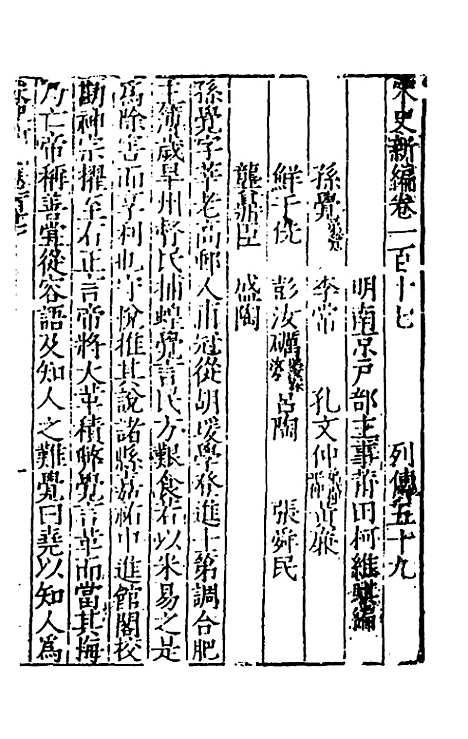 宋史新編卷一百十七　列傳五十九
明南京戶部主事莆田柯維騏編
孫覺　李常　孔文仲　黃廉
鮮于侁　彭汝礪　呂陶　張舜民
龔鼎臣　盛陶
孫覺字莘老高郵人甫冠從胡瑗學登進士第調合肥
主簿歲旱州督民捕蝗覺言民方艱食若以米易之是
為除害而享利也守悅推其說諸縣嘉祐中進館閣校
勘神宗擢至右正言帝將大革積弊覺言革而當其悔
乃亡帝稱善嘗從容語及知人之難覺曰堯以知人為